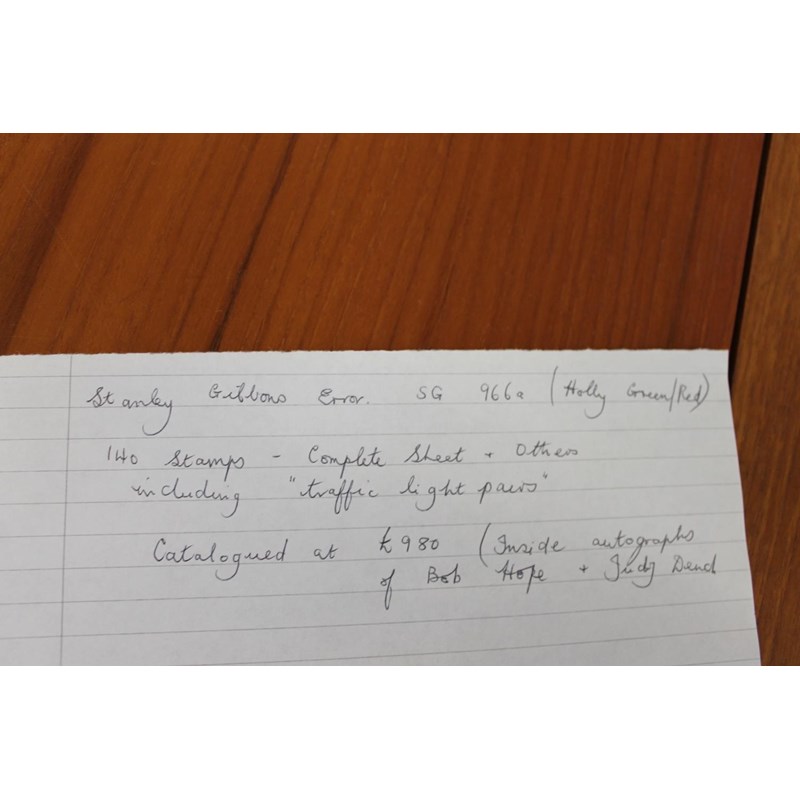 Stanley Gibbons Error. SG 966a (Holly Green/Red)
140 Stamps - Complete Sheet + Others
including "traffic light pairs"
Catalogued at £980 (Inside autographs
of Bob Hope + Judy Dend